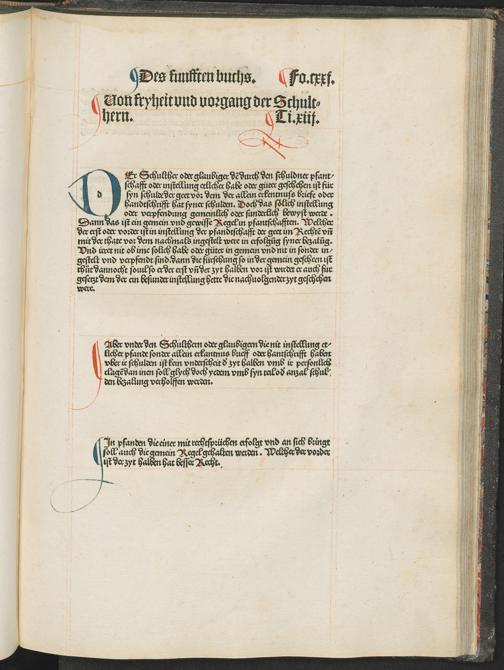 Des funfften buchs. Fo.cxxj.
Von fryheit vnd vorgang der Schult-
hern. Ti.xiij.
d
Er Schulther oder glaubiger dē durch den schuldner pfant-
schafft oder instellung etlicher habe oder güter geschehen ist für
syn schulde der geet vor dem der allein erkentnus brieff oder
handtschrifft hat syner schulden. Doch das sölich instellung
oder verpfendung gemeinlich oder sunderlich bewyst werde.
Dann das ist ein gemein vnd gewisse Regel in pfantschafften. Welher
der erst oder vorder ist in instellung der pfandschafft der geet im Rechtē vñ
mit der thate vor dem nachmals ingestelt were in erfolgūg syner bezalūg.
Vnd irret nit ob ime solich habe oder güter in gemein vnd nit in sonder in
gestelt vnd verpfendt sind dann die fürsehung so in der gemein geschehen ist
thüt dannocht souil so er der erst vñ der zyt halben vor ist werdt er auch für
gesetzt dem der ein besunder instellung hette die nachuolgender zyt geschehen
were.
Aber vnder den Schulthern oder glaubigern die nit instellung et-
licher pfande sonder allein erkantnus brieff oder hantschrifft haben
vber ir schulden ist kein vnderscheit d zyt halben vmb ir persönlich
clage dan inen soll glych doch yedem vmb syn teil od anzal schul
den bezalung verholffen werden.
In pfanden die einer mit rechtsprüchen erfolgt vnd an sich bringt
soll auch die gemein Regel gehalten werden. Welher der vorder
ist der zyt halben hat besser Recht.